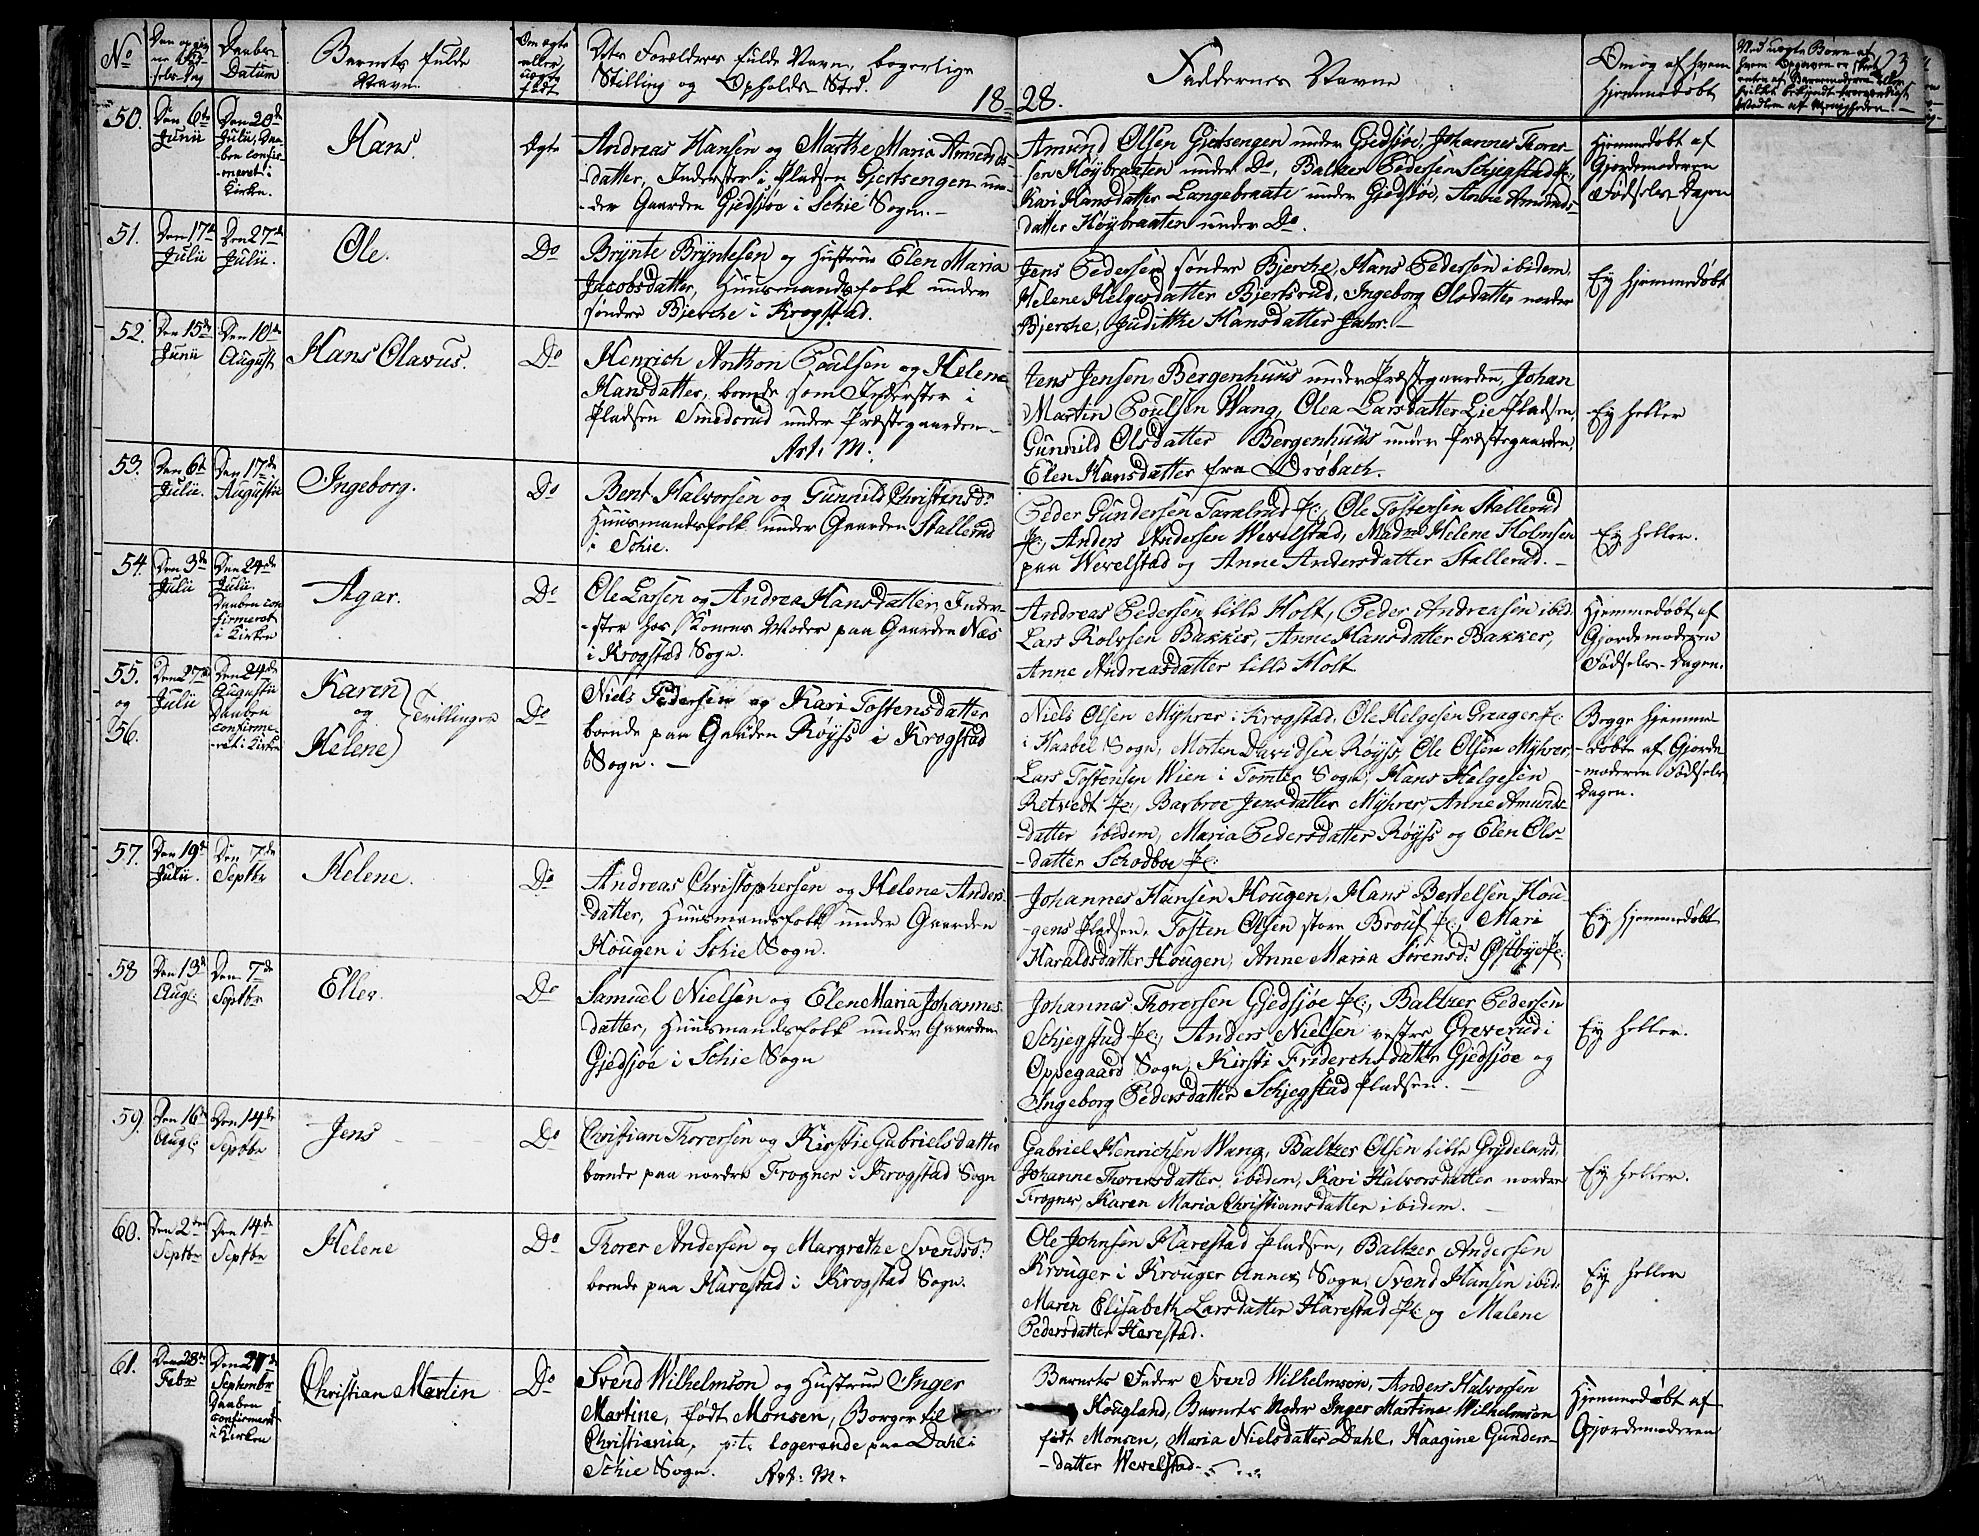 No
Daabs
Datum
Barnets fulde
Navn.
Om ægte
eller
uægte
født
Dets Forældres fulde Navn, borgerlige
Stilling og Opholds-Sted.
18
28.
Faddernes Navne
Om og af hvem
hjemmedøbt
50.
Den 6te
Junii
Den 20de
Julii, Daa-
ben confir-
meret i
Kirken.
Hans.
Ægte
Andreas Hansen og Marthe Maria Amunds-
datter, Inderster i Pladsen Gjertsengen un-
der Gaarden Gjedsjøe i Schie Sogn.-
Amund Olsen Gjertsengen under Gjedsjøe, Johannes Thores-
sen Høybraaten under Do, Baltzer Pedersen Schjegstad Pl:,
Kari Hansdatter Langebraate under Gjedsjøe, Anne Amunds-
datter Høybraaten under Do.
Hjemmedøbt af
Gjordemoderen
Fødsels-Dagen
51.
Den 17de
Julii
Den 27de
Julii.
Ole.
Do
Brynte Bryntesen og Hustrue Elen Maria
Jacobsdatter, Huusmandsfolk under
søndre Bjerche i Krogstad.
Jens Pedersen søndre Bjerche, Hans Pedersen ibidem,
Helene Helgesdatter Bjertsrud, Ingeborg Olsdatter nordre
Bjerche, Judithe Hansdatter Fahr.-
Ey hjemmedøbt
52.
Den 15de
Junii
Den 10de
August
Hans Olavus.
Do
Henrich Anthon Poulsen og Helene
Hansdatter, boende som Inderster i
Pladsen Smedsrud under Præstegaarden-
Art: M:
Jens Jensen Bergenhuus under Præstegaarden, Johan
Martin Poulsen Wang, Olea Larsdatter Lie Pladsen,
Gunnild Olsdatter Bergenhuus under Præstegaarden,
Elen Hansdatter fra Drøbach.
Ey heller
53.
Den 6te
Julii.
Den 17de
Augustii
Ingeborg.
Do
Bent Halvorsen og Gunnild Christensd:
Huusmandsfolk under Gaarden Stallerud
i Schie.
Peder Gundersen Taralrud Pl:, Ole Tostensen Stallerud
Pl:, Anders Andersen Wevelstad, Madme Helene Holmsen
paa Wevelstad og Anne Andersdatter Stallerud.-
Ey heller.
54.
Den 3de
Julii
Den 24de
Julii.
Daaben con-
firmeret
i Kirken
Agar.
Do
Ole Larsen og Andrea Hansdatter, Inder-
ster hos Konens Moder paa Gaarden Næs
i Krogstad Sogn.
Andreas Pedersen lille Holt, Peder Andreasen ibid.
Lars Rolvsen Bakker, Anne Hansdatter Bakker,
Anne Andreasdatter lille Holt
Hjemmedøbt af
Gjordemoderen
Fødsels-Dagen.
55.
og
56.
Den 27de
Julii
Den 24de
Augustii
Daaben
confirme-
ret i Kirken
Karen
og
Helene
Tvillinger
Do
Niels Pedersen og Kari Tostensdatter
boende paa Gaarden Røyss i Krogstad
Sogn.-
Niels Olsen Myhrer i Krogstad, Ole Helgesen Greager Pl:
i Haabel Sogn, Morten Davidsen Røyss, Ole Olsen Myhrer,
Lars Tostensen Wien i Tomter Sogn, Hans Helgesen
Retvedt Pl:, Barbroe Jensdatter Myhrer, Anne Amunds-
datter ibidem, Maria Pedersdatter Røyss og Elen Ols-
datter Schodboe Pl:
Begge hjemme-
døbte af Gjorde-
moderen Fødsels
Dagen.
57.
Den 19de
Julii.
Den 7de
Septbr
Helene.
Do
Andreas Christophersen og Helene Anders-
datter, Huusmandsfolk under Gaarden
Hougen i Schie Sogn.
Johannes Hansen Hougen, Hans Bertelsen Hou-
gens Pladsen, Tosten Olsen store Brouf Pl:, Mari
Haraldsdatter Hougen, Anne Maria Sørensd: Østbye Pl:
Ey hjemmedøbt
58
Den 13de
Aug:
Den 7de
Septbr
Eller.
Do
Samuel Nielsen og Elen Maria Johannes-
datter, Huusmandsfolk under Gaarden
Gjedsjøe i Schie Sogn
Johannes Thoresen Gjedsjøe Pl:, Baltzer Pedersen
Schjegstad Pl:, Anders Nielsen vestre Greverud i
Oppegaard Sogn, Kirsti Friderchsdatter Gjedsjøe og
Ingeborg Pedersdatter Schjegstad Pladsen.-
Ey heller.
59.
Den 16de
Aug:
Den 14de
Septbr
Jens
Do
Christian Thorersen og Kirstie Gabrielsdatter
boende paa nordre Frogner i Krogstad Sogn
Gabriel Henrichsen Wang, Baltzer Olsen lille Grydeland,
Johanne Thorersdatter ibidem, Kari Halvorsdatter nordre
Frogner, Karen Maria Christiansdatter ibidem.-
Ey heller.
60.
Den 2den
Septbr
Den 14de
Septbr
Helene
Do
Thorer Andersen og Margrethe Svendsd:
boende paa Harestad i Krogstad Sogn.
Ole Johnsen Harestad Pladsen, Baltzer Andersen
Krouger i Krouger Annex Sogn, Svend Hansen ibid:
Maren Elisabeth Larsdatter Harestad Pl: og Malene
Pedersdatter Harestad.
Ey heller
61.
Den 28de
Febr
Den 21de
Septembr
Daaben
confirmeret
i Kirken
Christian Martin
Do
Svend Wilhelmson og Hustrue Inger
Martine, født Monsen, Borger til
Christiania, p:t: logerende paa Dahl i
Schie Sogn.
Art: M:
Barnets Fader Svend Wilhelmson, Anders Halvorsen
Hougland, Barnets Moder Inger Martine Wilhelmson
født Monsen, Maria Nielsdatter Dahl, Haagine Gunders-
datter Wevelstad.-
Hjemmedøbt af
Gjordemoderen